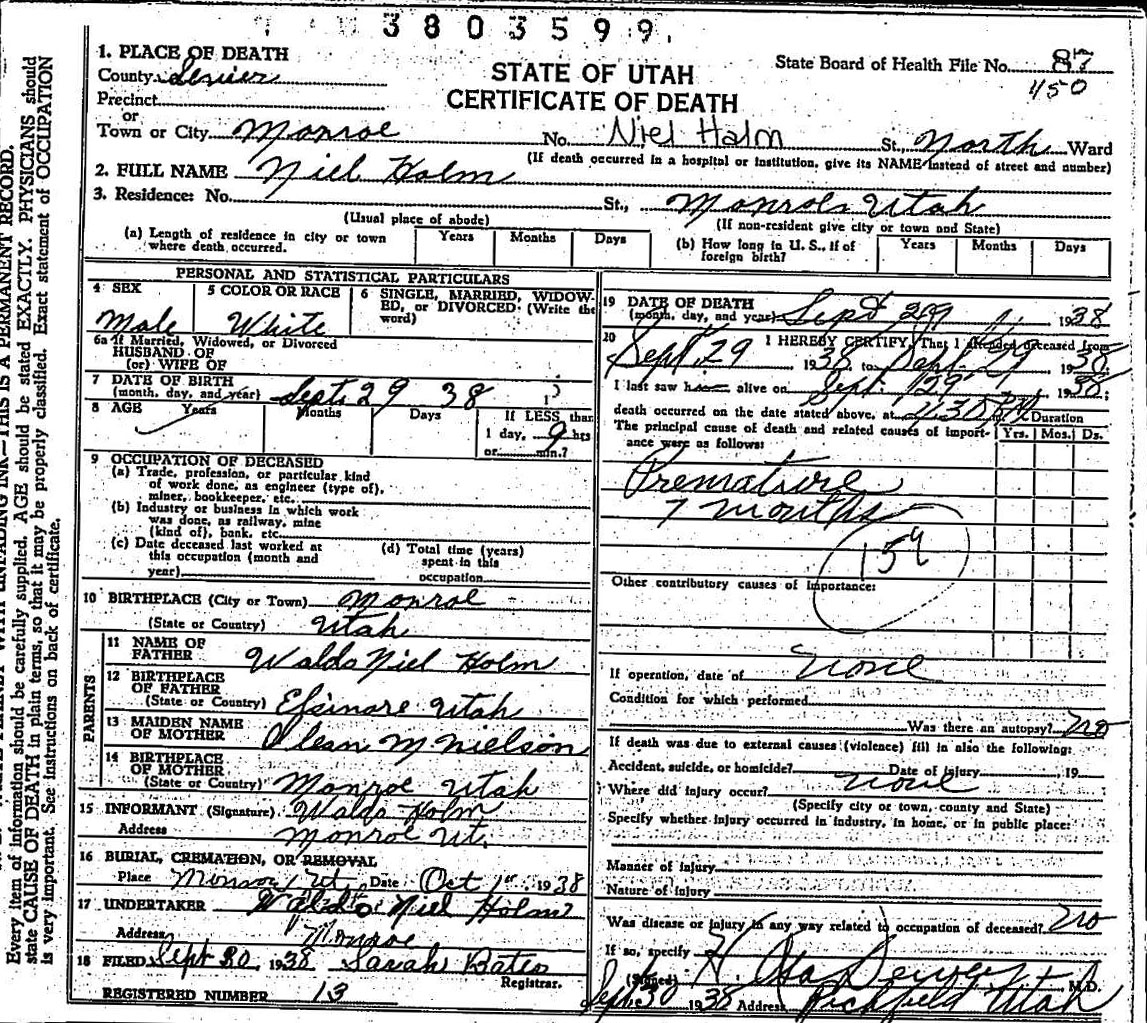 3803599
1. PLACE OF DEATH
County Sevier
STATE OF UTAH
State Board of Health File No. 87
450
Precinct
or
CERTIFICATE OF DEATH
Town or City Monroe No. Niel Halm St., North Ward
(If death occurred in a hospital or institution, give its NAME instead of street and number)
2. FULL NAME Niel Holm
3. Residence: No. St., Monroe Utah
(Usual place of abode) (If non-resident give city or town and State)
(a) Length of residence in city or town where death occurred. Years Months Days
(b) How long in U. S., if of foreign birth? Years Months Days
PERSONAL AND STATISTICAL PARTICULARS
4 SEX 5 COLOR OR RACE 6 SINGLE, MARRIED, WIDOWED, or DIVORCED (Write the word)
Male White
6a If Married, Widowed, or Divorced
HUSBAND OF
(or) WIFE OF
7 DATE OF BIRTH
(month, day, and year) Sept 29 38
8 AGE Years Months Days If LESS than
1 day, 9 hrs
or min.?
9 OCCUPATION OF DECEASED
(a) Trade, profession, or particular kind
of work done, as engineer (type of),
miner, bookkeeper, etc.
(b) Industry or business in which work
was done, as railway, mine
(kind of), bank, etc.
(c) Date deceased last worked at
this occupation (month and
year)
(d) Total time (years)
spent in this
occupation
10 BIRTHPLACE (City or Town) Monroe
(State or Country) Utah
PARENTS
11 NAME OF
FATHER Waldo Niel Holm
12 BIRTHPLACE
OF FATHER
(State or Country) Elsinore Utah
13 MAIDEN NAME
OF MOTHER Olean M. Nielson
14 BIRTHPLACE
OF MOTHER
(State or Country) Monroe Utah
15 INFORMANT (Signature) Waldo Holm
Address Monroe Ut.
16 BURIAL, CREMATION, OR REMOVAL
Place Monroe Ut. Date Oct 1" 1938
17 UNDERTAKER Waldo Niel Holm
Address Monroe
18 FILED Sept 30, 1938 Sarah Bates
Registrar.
REGISTERED NUMBER 13
19 DATE OF DEATH
(month, day, and year) Sept 29 1938
20 I HEREBY CERTIFY, That I attended deceased from
Sept. 29 1938 to Sept. 29 1938
I last saw h alive on Sept. 29 1938;
death occurred on the date stated above, at
The principal cause of death and related causes of importance were as follows:
Duration
Yrs. Mos. Ds.
Premature
7 months
159
Other contributory causes of importance:
If operation, date of None
Condition for which performed
Was there an autopsy? no
If death was due to external causes (violence) fill in also the following:
Accident, suicide, or homicide? Date of injury 19
Where did injury occur? None
(Specify city or town, county and State)
Specify whether injury occurred in industry, in home, or in public place:
Manner of injury
Nature of injury
Was disease or injury in any way related to occupation of deceased? no
If so, specify
(Signed) H M.D.
Sept. 30 1938 Address Richfield Utah
THIS IS A PERMANENT RECORD.
Every item of information should be carefully supplied. AGE should be stated EXACTLY. PHYSICIANS should
state CAUSE OF DEATH in plain terms, so that it may be properly classified. Exact statement of OCCUPATION
is very important. See instructions on back of certificate.